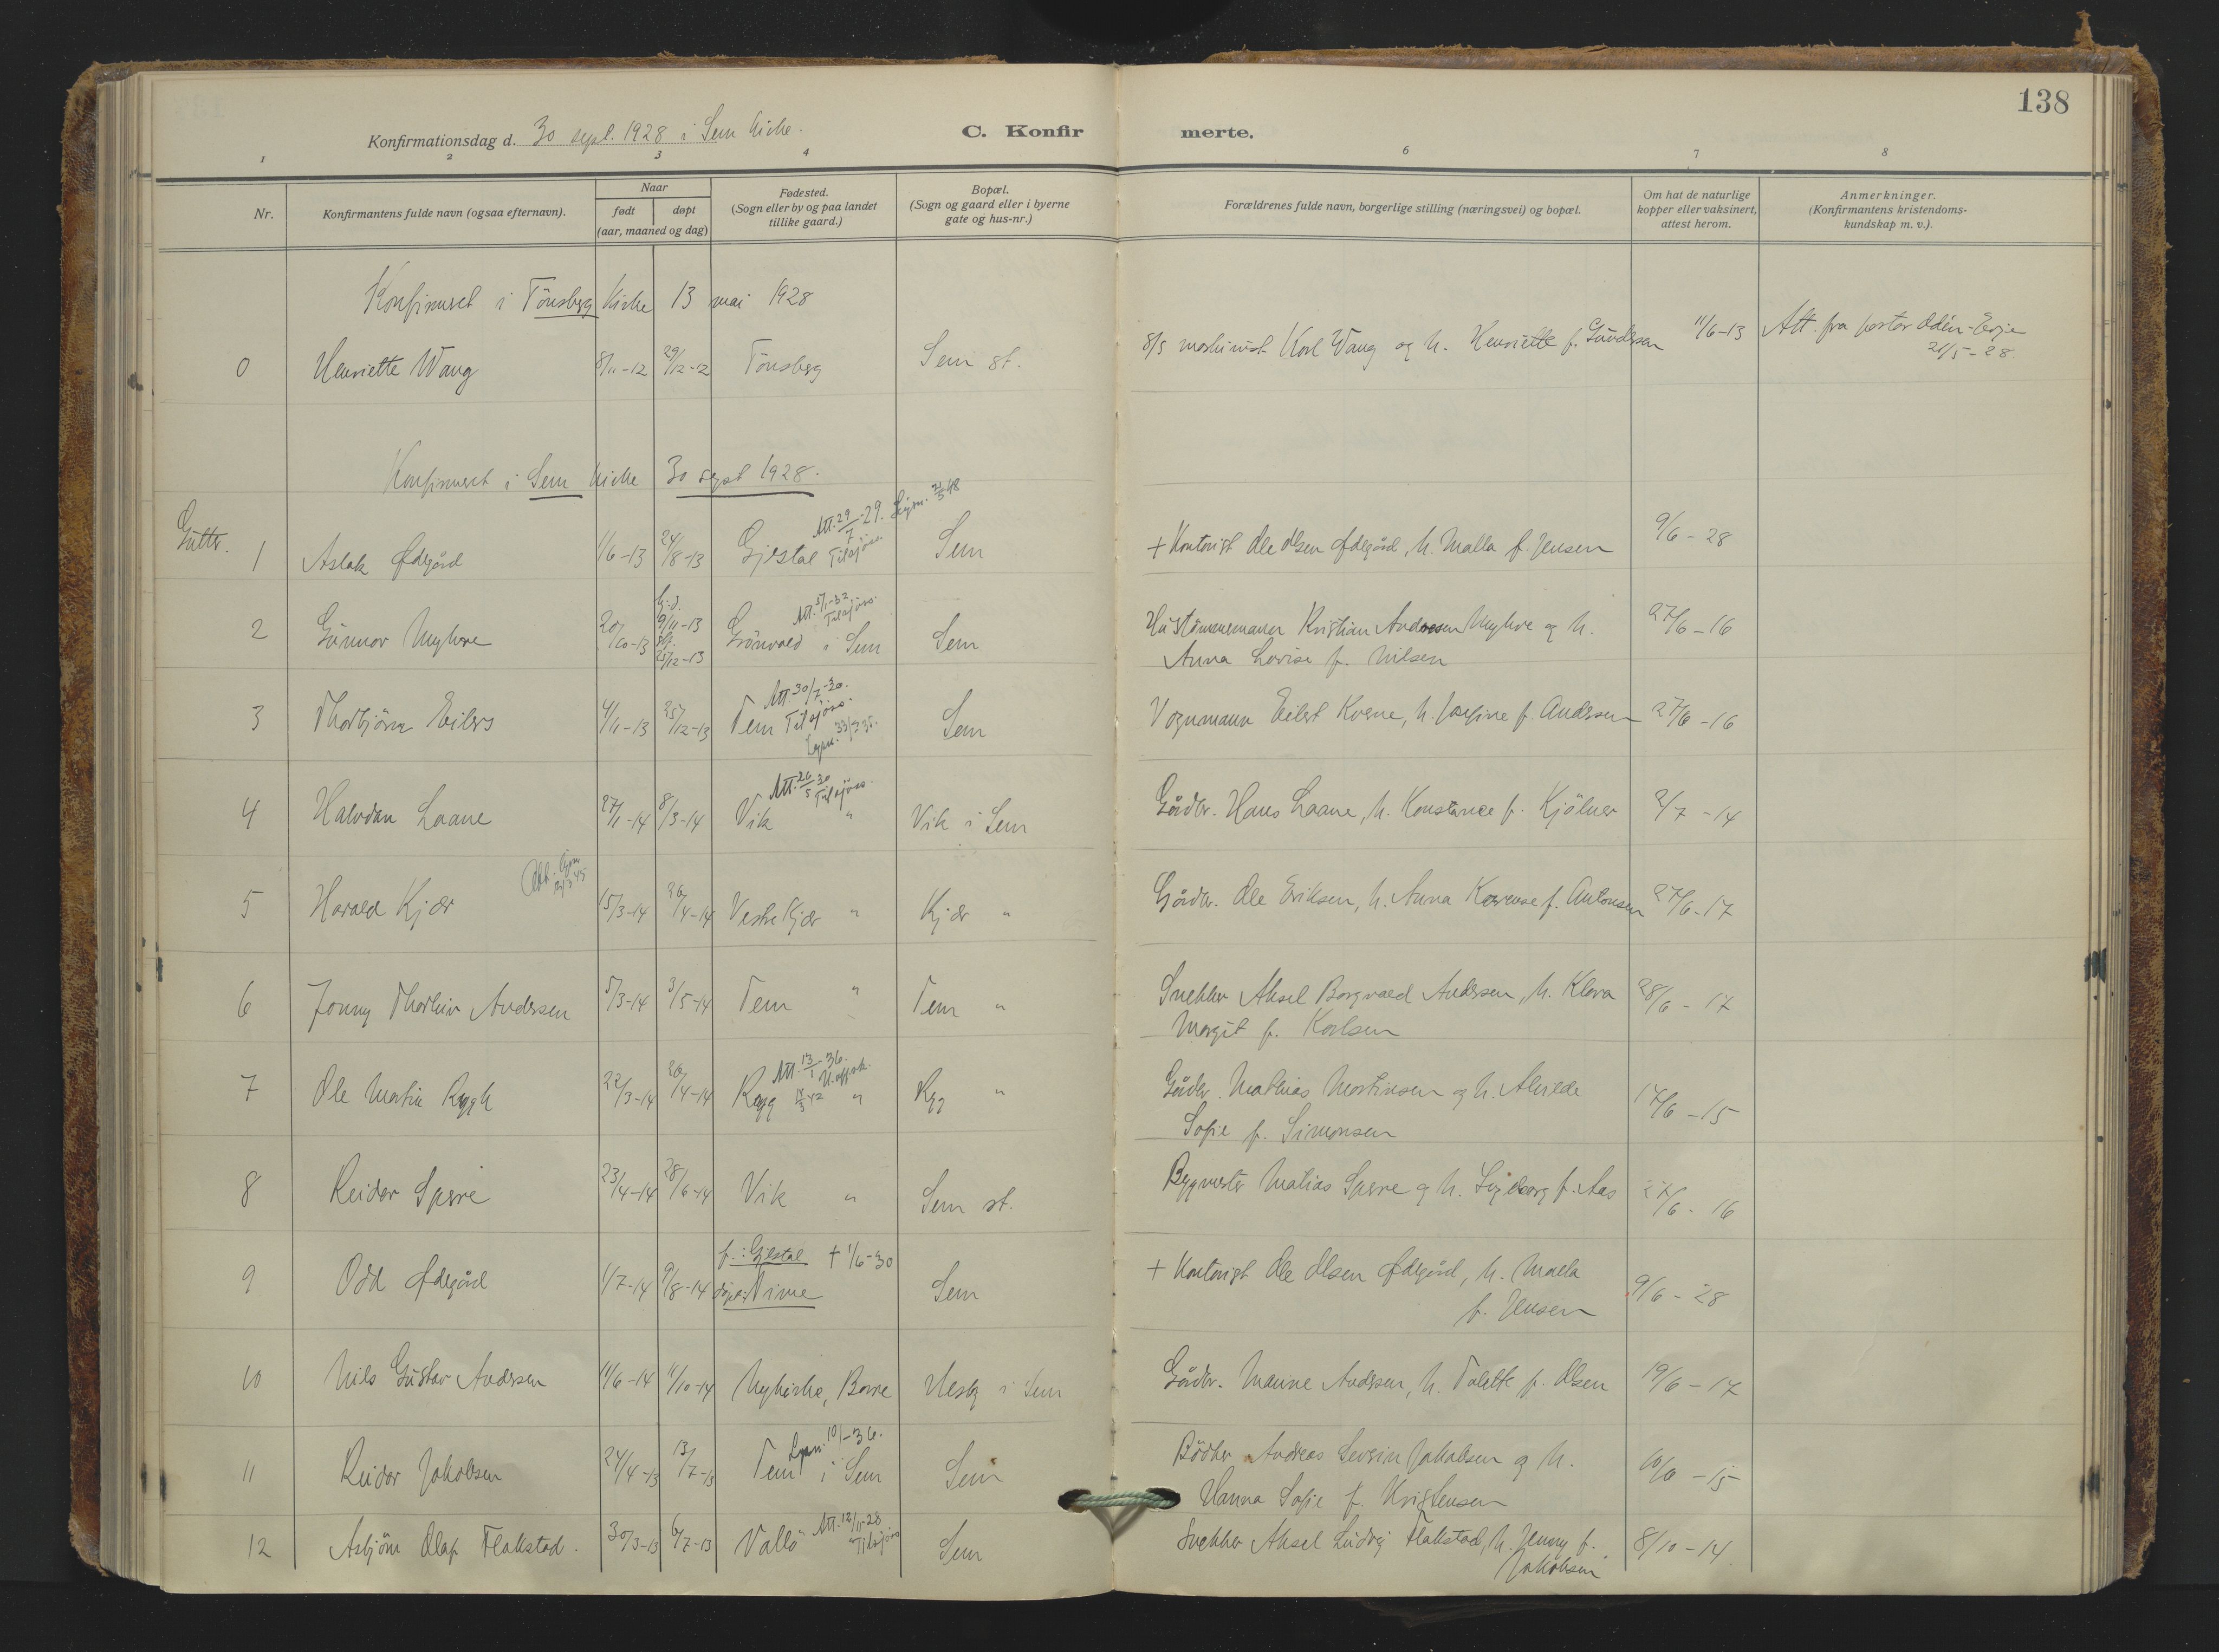 138
Konfirmationsdag d. 30 sept. 1928 i Sem kirke.
C. Konfirmerte.
1 2 3 4 6 7 8
Nr.
Konfirmantens fulde navn (ogsaa efternavn).
Naar
født døpt
(aar, maaned og dag)
Fødested.
(Sogn eller by og paa landet
tillike gaard.)
Bopæl.
(Sogn og gaard eller i byerne
gate og hus-nr.)
Forældrenes fulde navn, borgerlige stilling (næringsvei) og bopæl.
Om hat de naturlige
kopper eller vaksinert,
attest herom.
Anmerkninger.
(Konfirmantens kristendoms-
kundskap m. v.).
Konfirmert i Tönsberg kirke 13 mai 1928
0 Henriette Wang 8/11-12 29/12-12 Tönsberg Sem st. maskinist Karl Wang og h. Henriette f. Gundersen 11/6-13 Att. fra pastor Odén-Evje
21/5-28.
Konfirmert i Sem kirke 30 sept 1928.
Gutter.
Att. 29/7-29.
1 Aslak Ødegård 1/6-13 24/8-13 Gjestal Tilsjøss. Sem + Kontorist Ole Olsen Ødegård, h. Malla f. Jensen 9/6-28
Att. 5/1-32
Tilsjöss.
2 Gunnar Myhre 20/10-13 hj.d. 9/11-13 Grönvold i Sem Sem Hustömmermann Kristian Andresen Myhre og h. 27/6-16
25/12-13
Anna Lovise f. Nilsen
Att. 30/7-30.
3 Thorbjörn Eilers 4/11-13 25/12-13 Tem Tilsjöss. Sem Vognmann Eilert Kverne, h. Josefine f. Andersen 27/6-16
Att. 26/5-30
Tilsjöss.
4 Halvdan Laane 27/1-14 8/3-14 Vik " Vik i Sem Gårdbr. Hans Laane, h. Konstance f. Kjölner 2/7-14
5 Harald Kjær 15/3-14 26/4-14 Vestre Kjær " Kjær " Gårdbr. Ole Eriksen, h. Anna Karense f. Antonsen 27/6-17
6 Jonny Thorleiv Andersen 5/3-14 3/5-14 Tem " Tem " Snekker Aksel Borgvald Andersen, h. Klara 28/6-17
Margit f. Karlsen
Att. 13/1-36.
7 Ole Martin Rygh 22/3-14 26/4-14 " " Gårdbr. Mathias Martinsen og h. Alvilde 17/6-15
Sofie f. Simonsen
8 Reidar Sperre 23/4-14 28/6-14 Vik " Sem st. Byggmester Matias Sperre og h. Ingeborg f. Aas 27/6-16
f.: Gjestal + 1/6-30
9 Odd Ødegård 1/7-14 9/8-14 döpt: Time Sem + Kontorist Ole Olsen Ødegård, h. Malla 9/6-28
f. Jensen
10 Nils Gustav Andersen 14/6-14 11/10-14 Nykirke, Borre i Sem Gårdbr. Manne Andersen, h. Tolette f. Olsen 19/6-17
11 Reidar Jakobsen 24/4-13 13/7-13 Tem i Sem Sem Bödker Andreas Severin Jakobsen og h. 10/6-15
Hanna Sofie f. Kristensen
Att. 12/11-28
Tilsjöss
12 Asbjörn Olaf Flakstad. 30/3-13 6/7-13 Vallö Sem Snekker Aksel Ludvig Flakstad, h. Jenny f. 8/10-14
Jakobsen